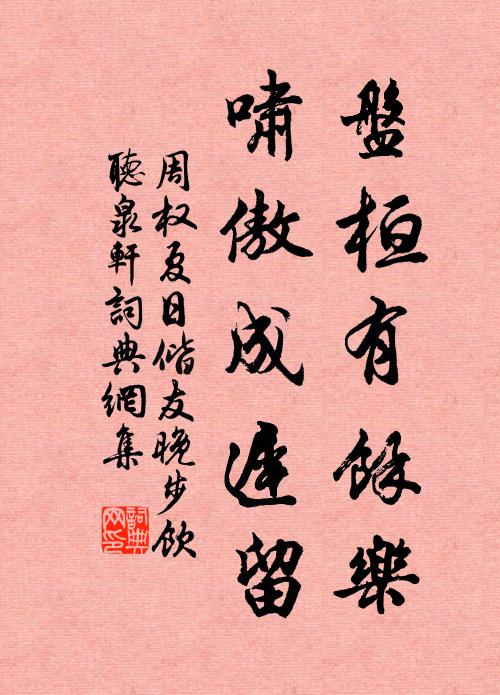 盤桓有餘樂
嘯傲成遲留
周权夏日偕友晚步飲
聽泉軒詞典網集
詞典网印